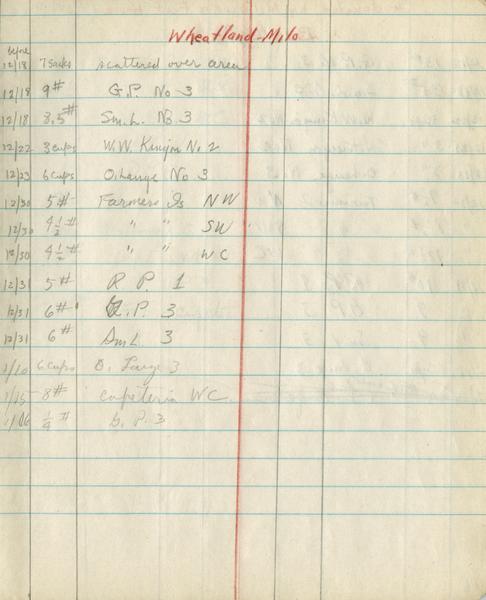 Wheatland-Milo
before
12/18 7 sacks scattered over area
12/18 9# G.P. No 3
12/18 8.5# Sm. L. No. 3
12/22 3 cups W.W. No 2
12/23 6 cups No 3
12/30 5# Farmers Is NW
12/30 4½# " " SW "
12/30 4½# " " WC
12/31 5# R P. 1
12/31 6# G. P. 3
12/31 6# Sm L. 3
1/10 6 cups O. 3
1/15 8# cafeteria WC.
1/16 ¼# G. P. 3